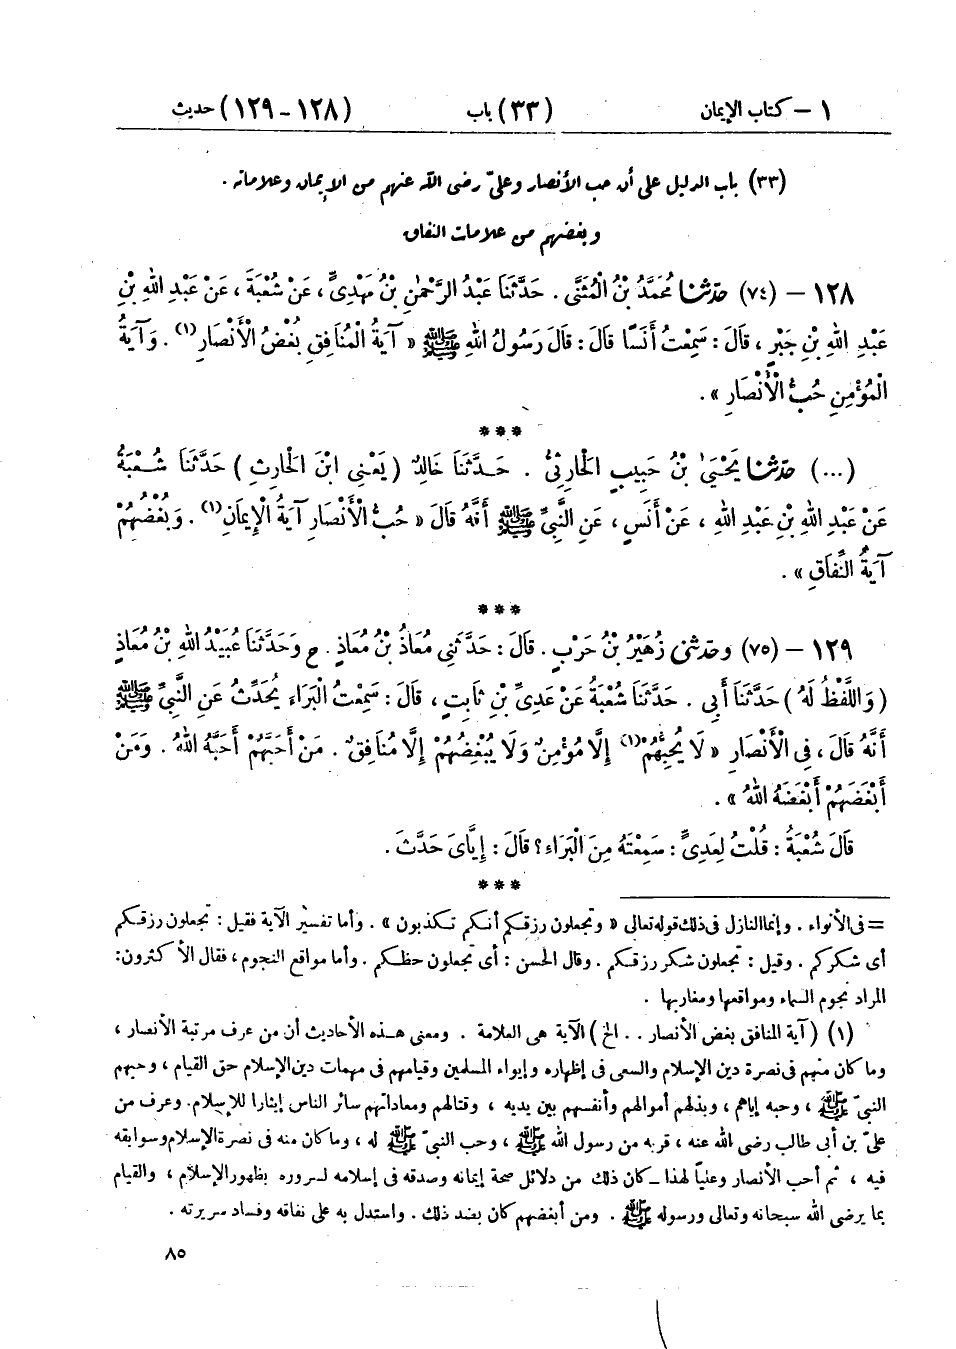 ١ – كتاب الإيمان (٣٣) باب (١٢٨ – ١٢٩) حديث
(٣٣) باب الدليل على أن حب الأنصار وعلىّ رضى الله عنهم من الإيمان وعلاماته .
وبغضهم من علامات النفاق
١٢٨ – (٧٤) حَدَّثَنَا مُحَمَّدُ بْنُ الْمُثَنَّى . حَدَّثَنَا عَبْدُ الرَّحْمٰنِ بْنُ مَهْدِىٍّ ، عَنْ شُعْبَةَ ، عَنْ عَبْدِ اللهِ بْنِ
عَبْدِ اللهِ بْنِ جَبْرٍ ، قَالَ : سَمِعْتُ أَنَسًا قَالَ : قَالَ رَسُولُ اللهِ ﷺ « آيَةُ الْمُنَافِقِ بُغْضُ الْأَنْصَارِ (١) . وَآيَةُ
الْمُؤْمِنِ حُبُّ الْأَنْصَارِ » .
***
(...) حَدَّثَنَا يَحْيَىٰ بْنُ حَبِيبٍ الْحَارِثِىُّ . حَدَّثَنَا خَالِدٌ (يَعْنِى ابْنَ الْحَارِثِ) حَدَّثَنَا شُعْبَةُ
عَنْ عَبْدِ اللهِ بْنِ عَبْدِ اللهِ ، عَنْ أَنَسٍ ، عَنِ النَّبِىِّ ﷺ أَنَّهُ قَالَ « حُبُّ الْأَنْصَارِ آيَةُ الْإِيمَانِ (١) . وَبُغْضُهُمْ
آيَةُ النِّفَاقِ » .
***
١٢٩ – (٧٥) وحَدَّثَنِى زُهَيْرُ بْنُ حَرْبٍ . قَالَ : حَدَّثَنِى مُعَاذُ بْنُ مُعَاذٍ . ح وَحَدَّثَنَا عُبَيْدُ اللهِ بْنُ مُعَاذٍ
(وَاللَّفْظُ لَهُ) حَدَّثَنَا أَبِى . حَدَّثَنَا شُعْبَةُ عَنْ عَدِىِّ بْنِ ثَابِتٍ ، قَالَ : سَمِعْتُ الْبَرَاءَ يُحَدِّثُ عَنِ النَّبِىِّ ﷺ
أَنَّهُ قَالَ ، فِى الْأَنْصَارِ « لَا يُحِبُّهُمْ (١) إِلَّا مُؤْمِنٌ وَلَا يُبْغِضُهُمْ إِلَّا مُنَافِقٌ . مَنْ أَحَبَّهُمْ أَحَبَّهُ اللهُ . وَمَنْ
أَبْغَضَهُمْ أَبْغَضَهُ اللهُ » .
قَالَ شُعْبَةُ : قُلْتُ لِعَدِىٍّ : سَمِعْتَهُ مِنَ الْبَرَاءِ ؟ قَالَ : إِيَّاىَ حَدَّثَ .
***
= فى الأنواء . وإنما النازل فى ذلك قوله تعالى « وتجعلون رزقكم أنكم تكذبون » . وأما تفسير الآية فقيل : تجعلون رزقكم
أى شكركم . وقيل : تجعلون شكر رزقكم . وقال الحسن : أى تجعلون حظكم . وأما مواقع النجوم ، فقال الأكثرون :
المراد نجوم السماء ومواقعها ومغاربها .
(١) (آية المنافق بغض الأنصار . . الخ) الآية هى العلامة . ومعنى هذه الأحاديث أن من عرف مرتبة الأنصار ،
وما كان منهم فى نصرة دين الإسلام والسعى فى إظهاره وإيواء المسلمين وقيامهم فى مهمات دين الإسلام حق القيام ، وحبهم
النبىّ ﷺ ، وحبه إياهم ، وبذلهم أموالهم وأنفسهم بين يديه ، وقتالهم ومعاداتهم سائر الناس إيثارا للإسلام . وعرف من
علىّ بن أبى طالب رضى الله عنه ، قربه من رسول الله ﷺ ، وحب النبىّ ﷺ له ، وما كان منه فى نصرة الإسلام وسوابقه
فيه ، ثم أحب الأنصار وعليًّا لهذا – كان ذلك من دلائل صحة إيمانه وصدقه فى إسلامه لسروره بظهور الإسلام ، والقيام
بما يرضى الله سبحانه وتعالى ورسوله ﷺ . ومن أبغضهم كان بضد ذلك . واستدل به على نفاقه وفساد سريرته .
٨٥